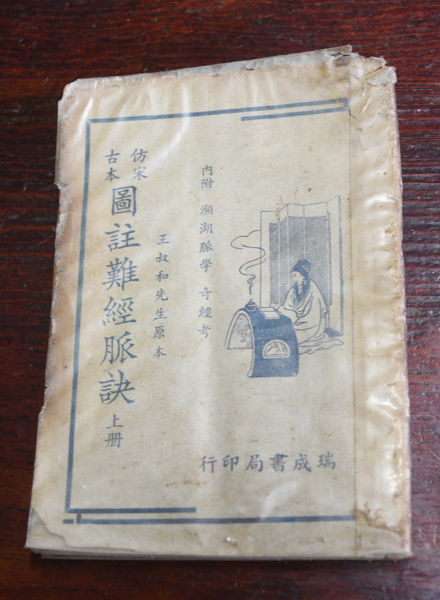 內附 瀕湖脈學 奇經考
王叔和先生原本
仿宋古本
圖註難經脈訣 上册
瑞成書局印行